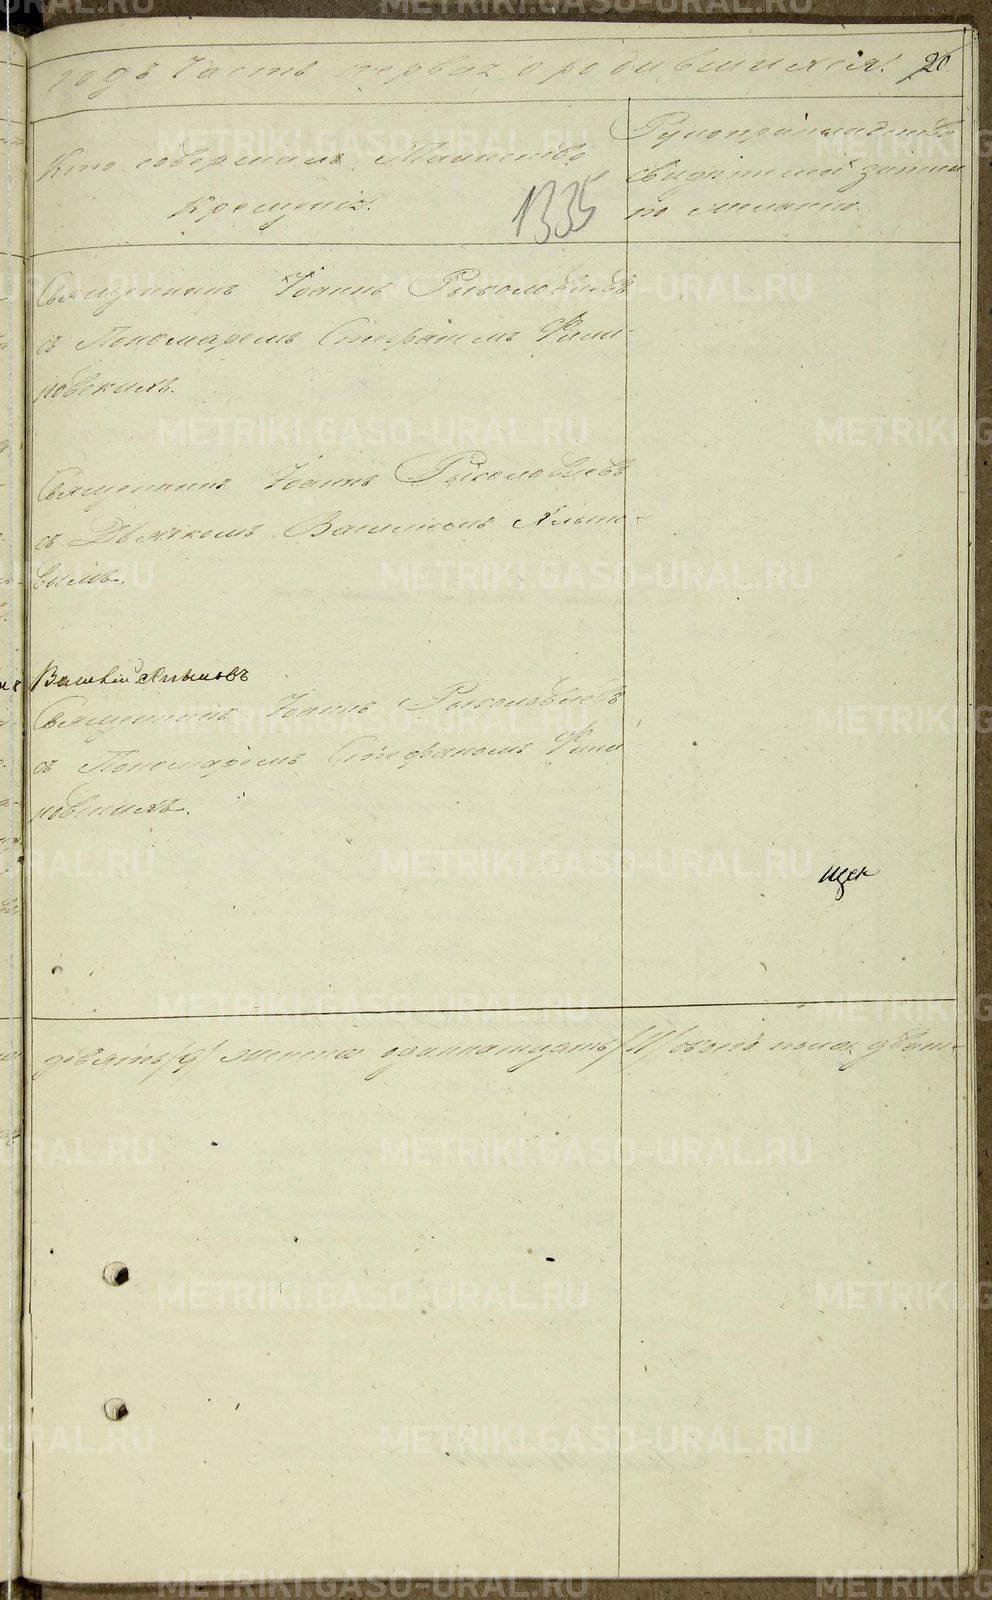 годъ Часть первая о родившихся. 20
Кто совершалъ Таинство
Крещенія.
1335
Рукоприкладство
свидѣтелей записи
по желанію.
Священникъ Іоаннъ Рыколовлевъ
съ Пономаремъ Стефаномъ
новскимъ.
Священникъ Іоаннъ Рыколовлевъ
съ Дьячкомъ Василіемъ
вымъ.
Священникъ Іоаннъ Рыколовлевъ
съ Пономаремъ Стефаномъ
новскимъ.
щек
девять /9/ женска одиннатцать /11/ обоего пола дват-
METRIKI.GASO-URAL.RU